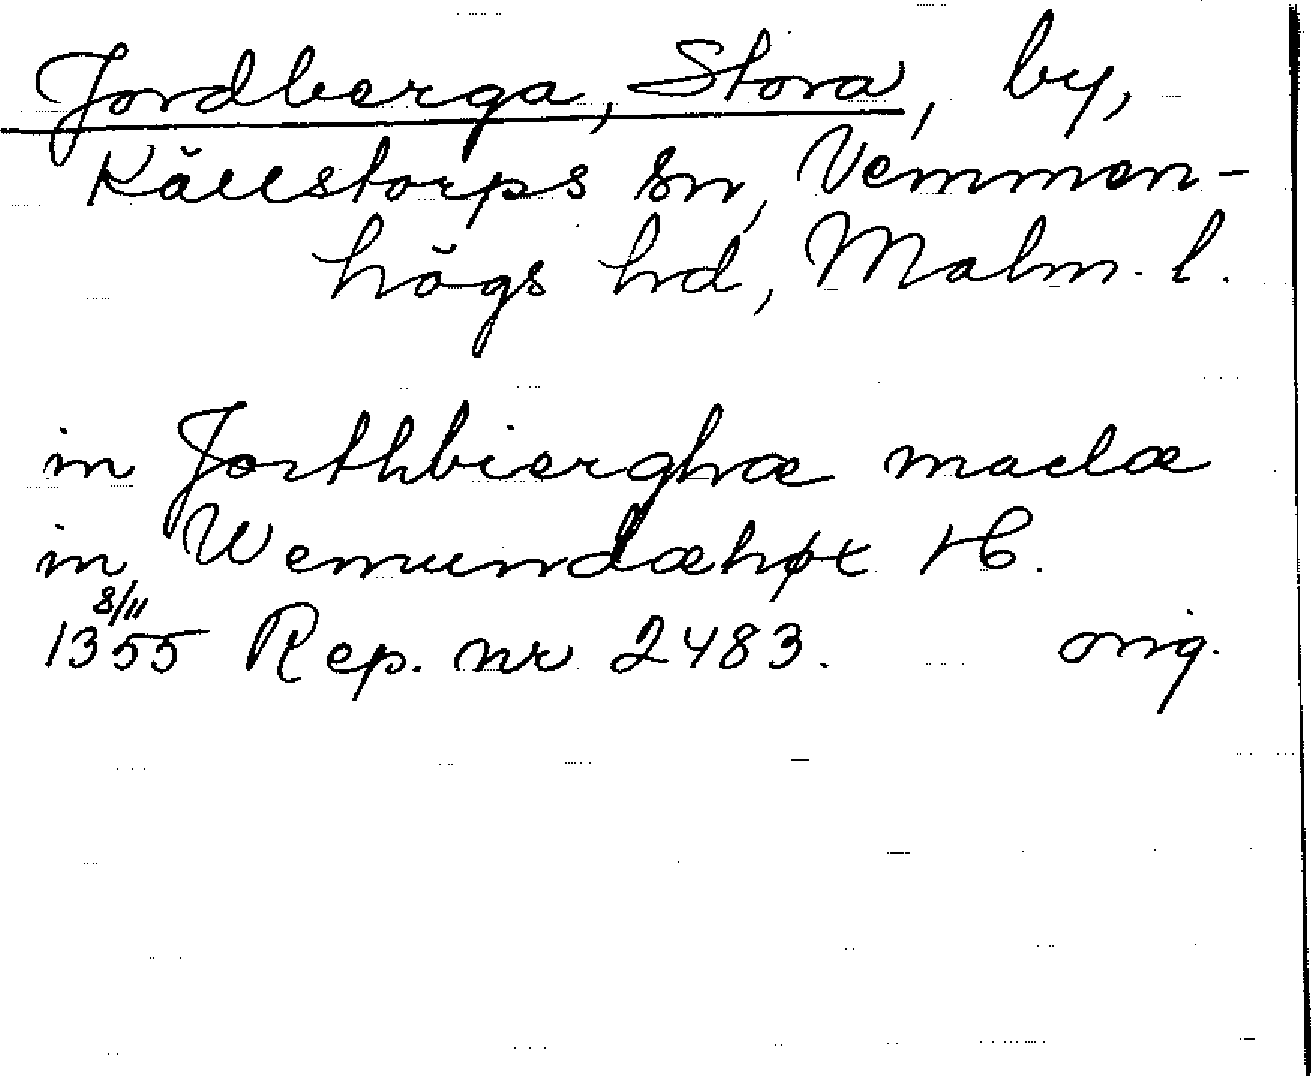 Jordberga, Stora, by,
Källstorps sn, Vemmen-
högs hd, Malm. l.
in Jorthbierghæ maclæ
in Wemundæhøx H.
8/11
1355 Rep. nr 2483. orig.